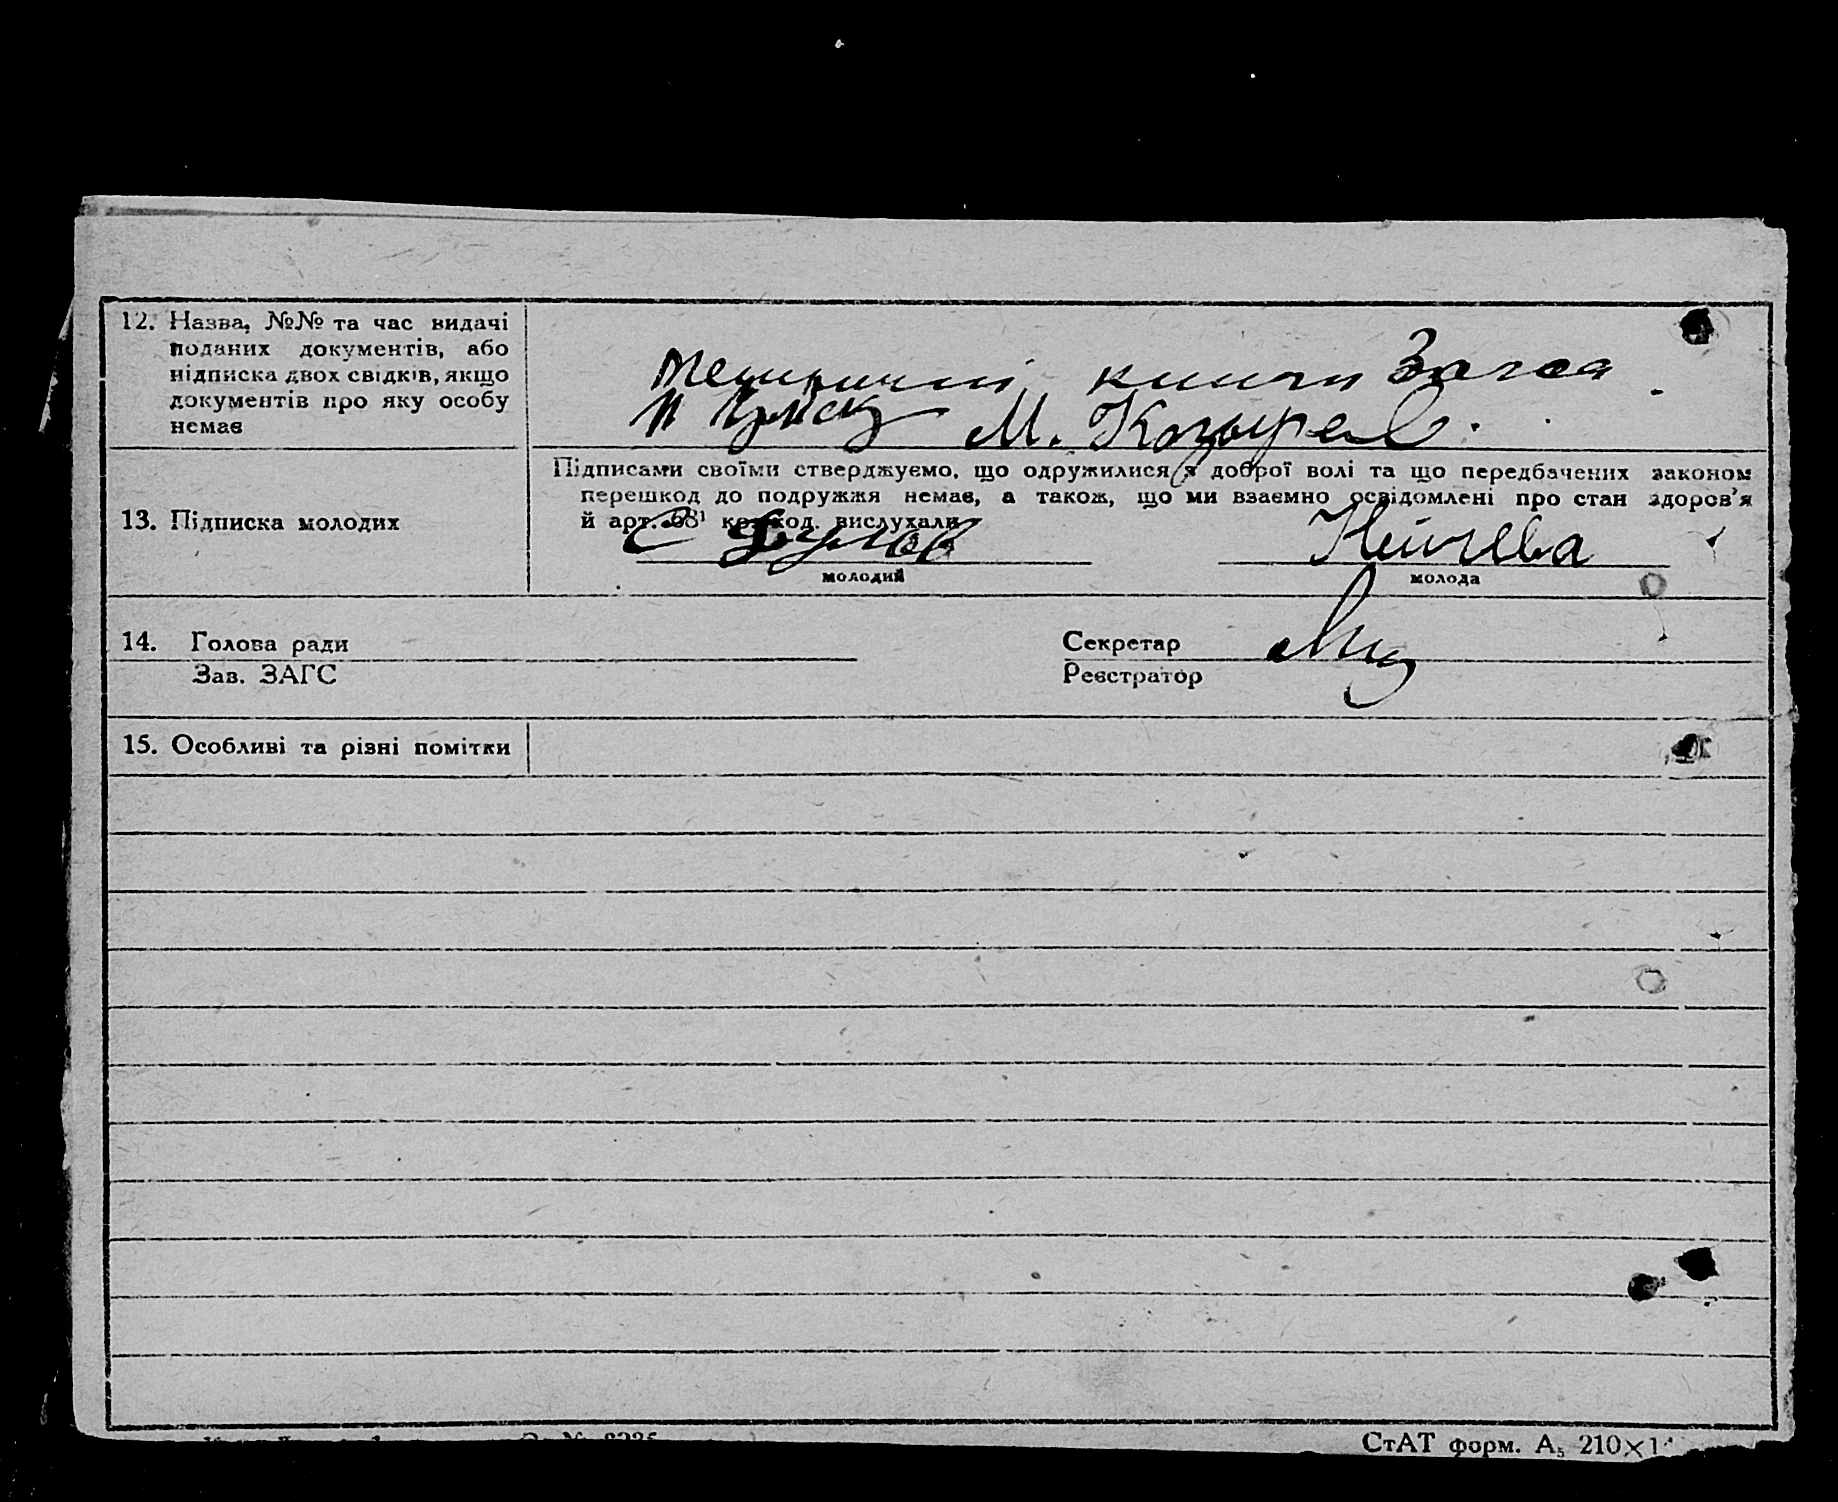 12. Назва, №№ та час видачі
поданих документів, або
підписка двох свідків, якщо
документів про яку особу
немає
Загса
М. Козырев.
Підписами своїми стверджуємо, що одружилися з доброї волі та що передбачених законом
перешкод до подружжя немає, а також, що ми взаємно освідомлені про стан здоров'я
13. Підписка молодих
й арт. 68¹ код. вислухали
молодий
молода
14. Голова ради
Секретар
Зав. ЗАГС
Реєстратор
15. Особливі та різні помітки
СтАТ форм. А₅ 210×1